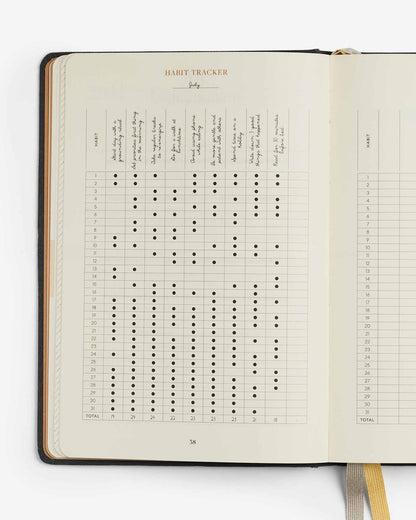 HABIT TRACKER
July
HABIT
Start day with a
grounding ritual
Set priorities first thing
in the morning
Take regular breaks
to
Go for a walk at
lunchtime
Avoid using phone
while eating
Be more gentle and
patient with others
Spend time on a
hobby
Write down 3 good
things that happened
Read for 10 minutes
before bed
HABIT
1
2
3
4
5
6
7
8
9
10
11
12
13
14
15
16
17
18
19
20
21
22
23
24
25
26
27
28
29
30
31
TOTAL
1
2
3
4
5
6
7
8
9
10
11
12
13
14
15
16
17
18
19
20
21
22
23
24
25
26
27
28
29
30
31
TOTAL
38